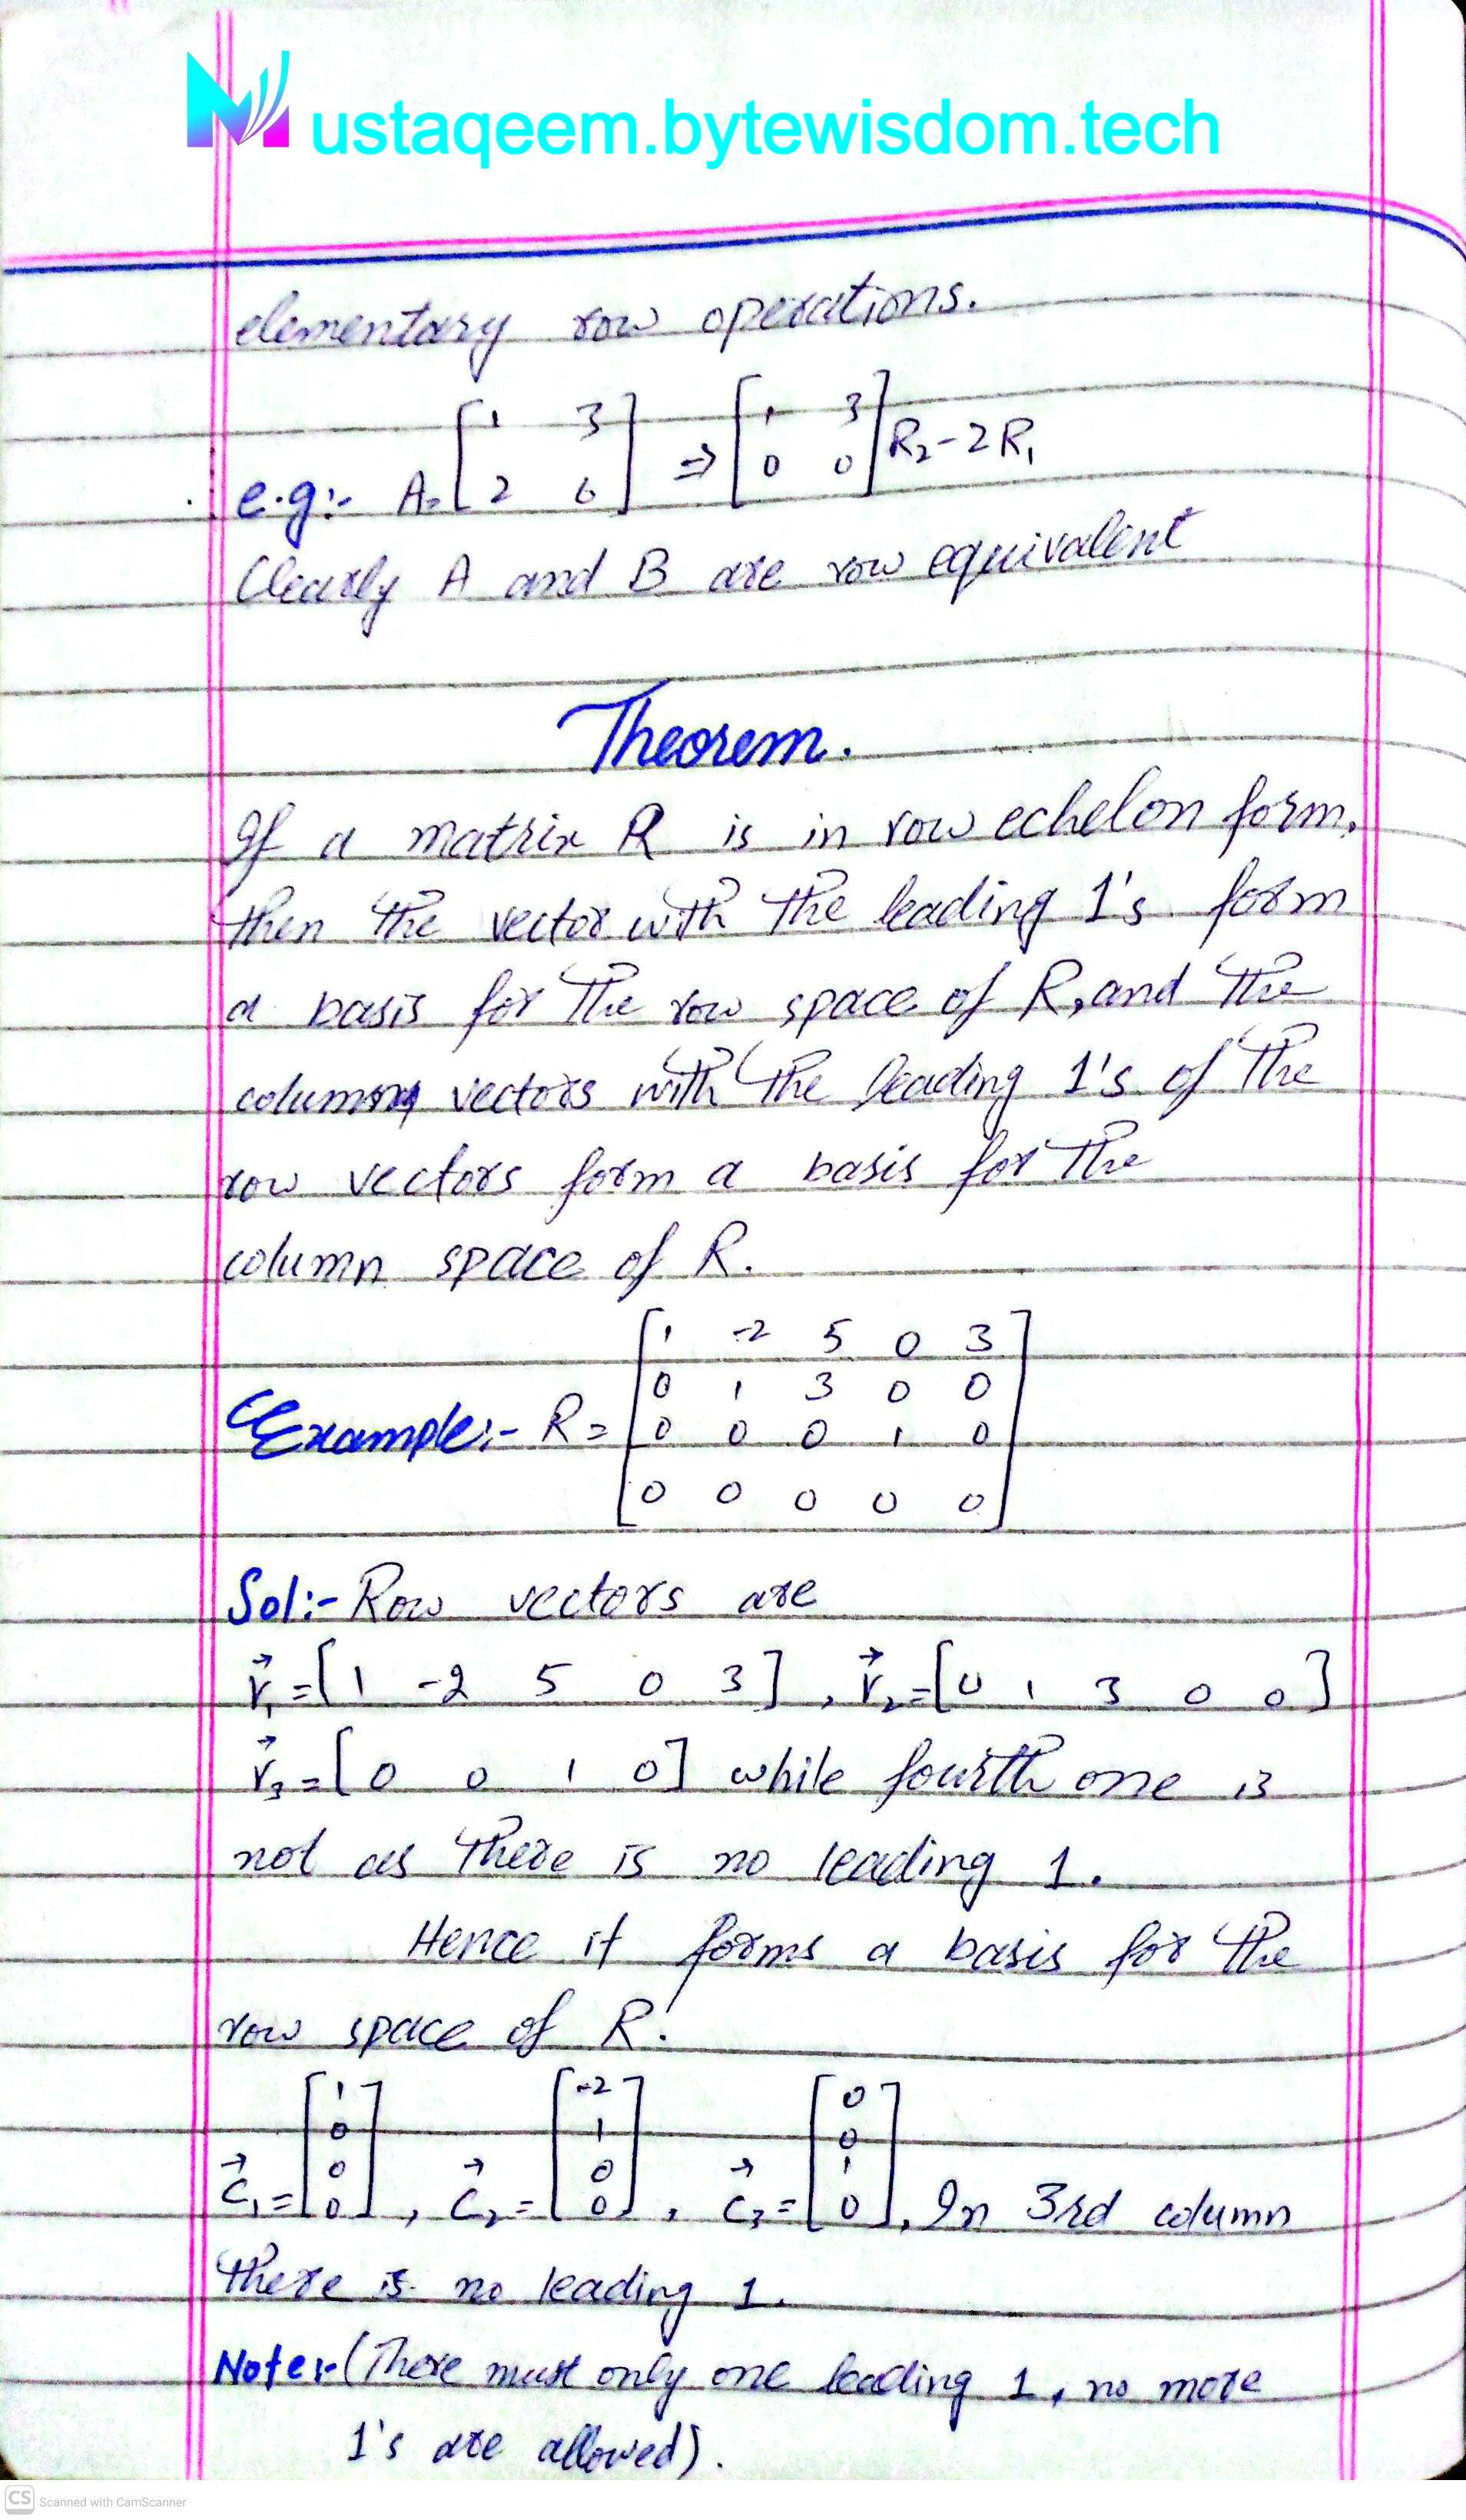 Mustaqeem.bytewisdom.tech
elementary row operations.
e.g:- A= [1 3 / 2 6] ⇒ [1 3 / 0 0] R₂-2R₁
Clearly A and B are row equivalent
Theorem.
If a matrix R is in row echelon form,
then the vector with the leading 1's form
a basis for the row space of R, and the
column vectors with the leading 1's of the
row vectors form a basis for the
column space of R.
Example:- R= [1 -2 5 0 3
0 1 3 0 0
0 0 0 1 0
0 0 0 0 0]
Sol:- Row vectors are
r⃗₁=[1 -2 5 0 3], r⃗₂=[0 1 3 0 0]
r⃗₃=[0 0 1 0] while fourth one is
not as there is no leading 1.
Hence it forms a basis for the
row space of R.
c⃗₁=[1 / 0 / 0 / 0], c⃗₂=[-2 / 1 / 0 / 0], c⃗₃=[0 / 0 / 1 / 0], In 3rd column
there is no leading 1.
Note:- (There must only one leading 1, no more
1's are allowed).
CS Scanned with CamScanner